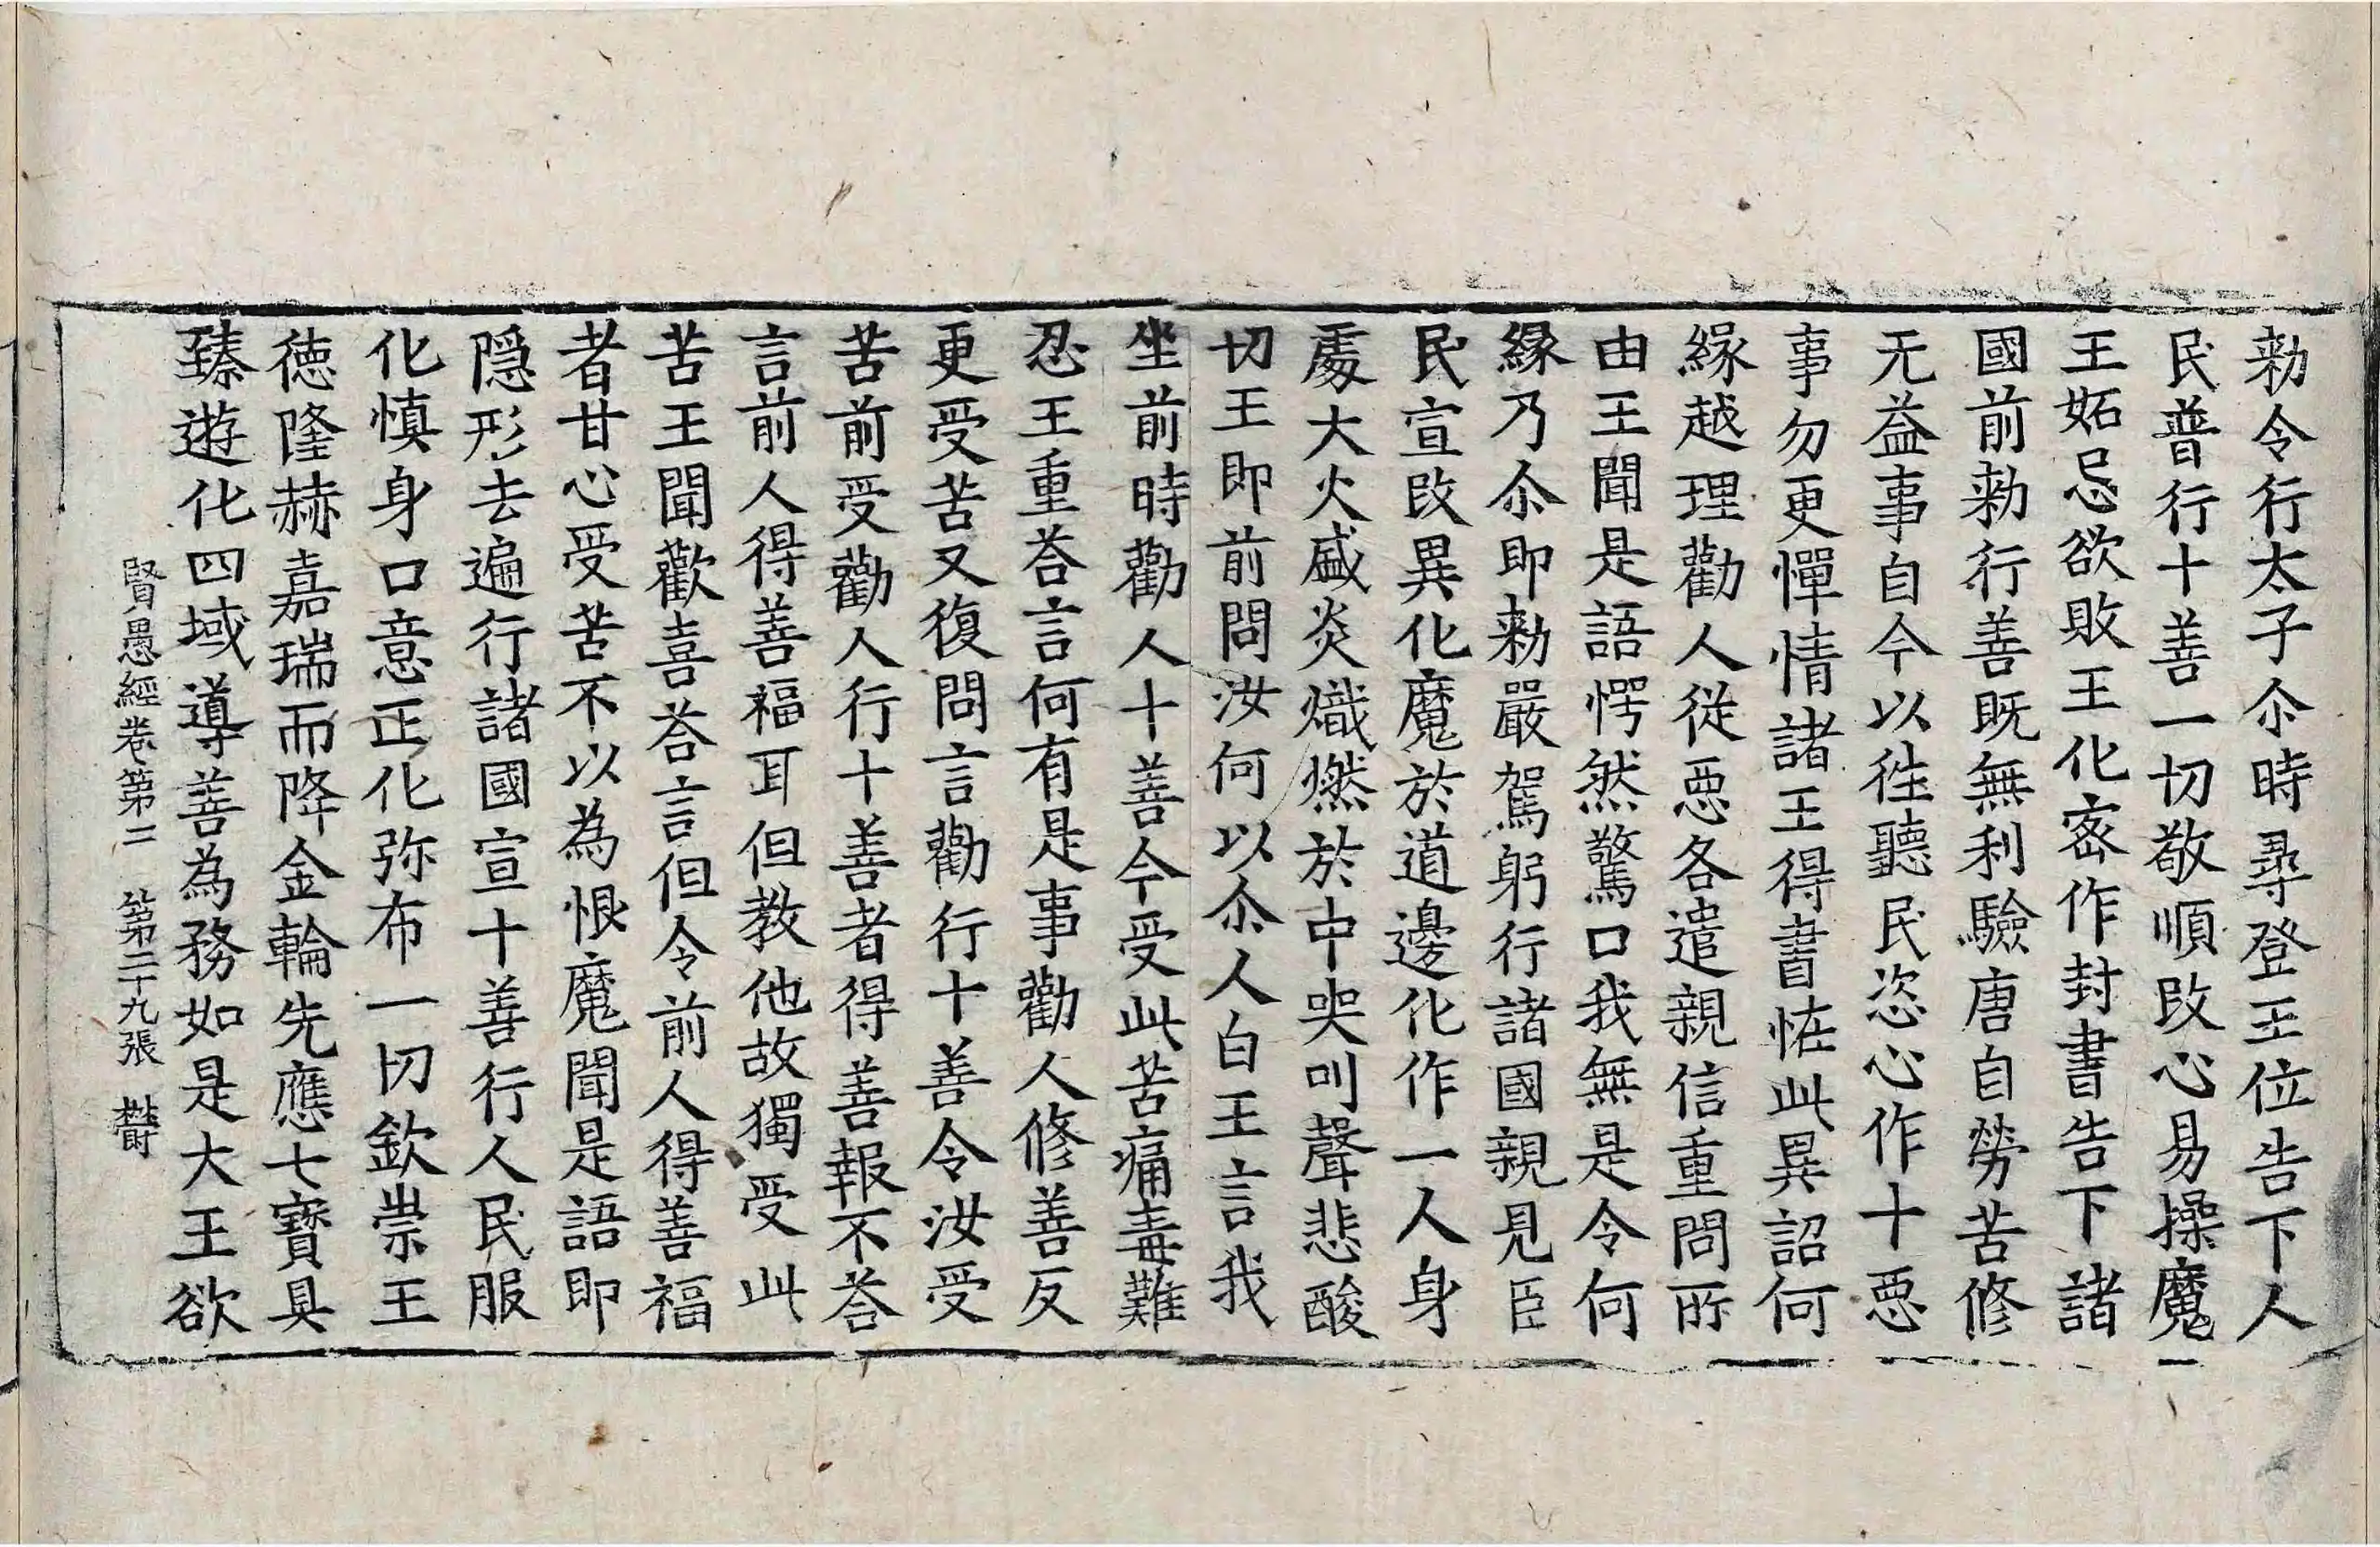 勑令行太子尒時尋登王位告下人
民普行十善一切敬順改心易操魔
王妬忌欲敗王化密作封書告下諸
國前勑行善既無利驗唐自勞苦修
无益事自今以徃聽民恣心作十惡
事勿更憚情諸王得書恠此異詔何
緣越理勸人從惡各遣親信重問所
由王聞是語愕然驚口我無是令何
緣乃尒即勑嚴駕躬行諸國親見臣
民宣改異化魔於道邊化作一人身
處大火盛炎熾燃於中哭叫聲悲酸
切王即前問汝何以尒人白王言我
坐前時勸人十善今受此苦痛毒難
忍王重荅言何有是事勸人修善反
更受苦又復問言勸行十善令汝受
苦前受勸人行十善者得善報不荅
言前人得善福耳但教他故獨受此
苦王聞歡喜荅言但令前人得善福
者甘心受苦不以為恨魔聞是語即
隱形去遍行諸國宣十善行人民服
化慎身口意正化弥布一切欽崇王
德隆赫嘉瑞而降金輪先應七寶具
臻遊化四域導善為務如是大王欲
賢愚經卷第三 第二十九張 欝